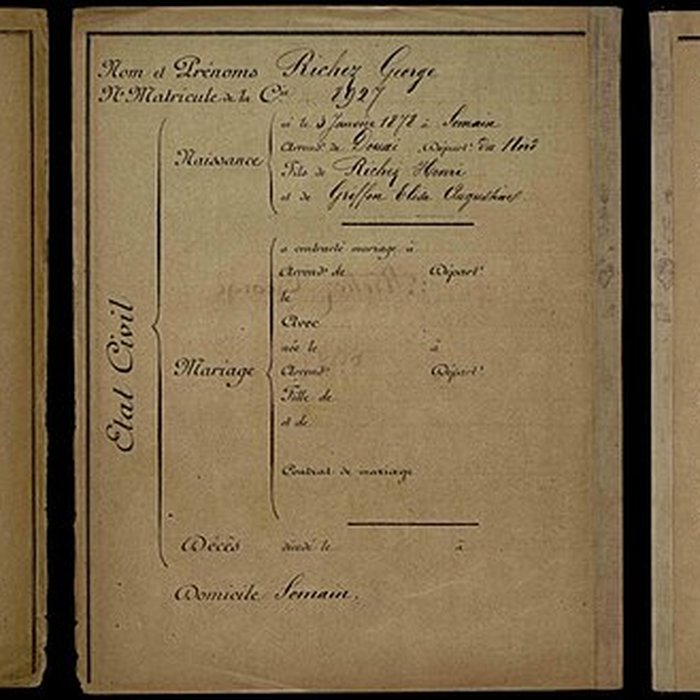 Nom et Prénoms Richez George
No Matricule de la Cie 1927
Etat Civil
Naissance
né le 3 Janvier 1878 à Somain
Arrondt de Douai Départt du Nord
Fils de Richez Henri
et de Griffon Elisa Augustine
Mariage
a contracté mariage à
Arrondt de Départt
le
Avec
née le à
Arrondt Départt
Fille de
et de
Contrat de mariage
Décès décédé le à
Domicile Somain.